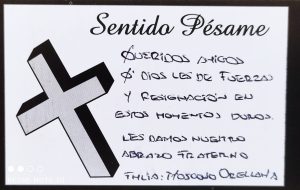 Sentido Pésame
QUERIDOS AMIGOS
Q' DIOS LES DE FUERZAS
Y RESIGNACIÓN EN
ESTOS MOMENTOS DUROS.
LES DAMOS NUESTRO
ABRAZO FRATERNO
FMLIA: MOSCOSO ORELLANA